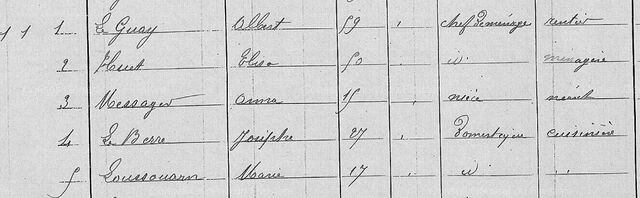 1 1 1 Le Guay Albert 59 , chef de menage rentier
2 Huet Elisa 50 , id menagère
3 Messager Anna 15 , nièce néant
4 Le Berre Josèphe 27 , Domestique cuisinière
5 Toussouarn Marie 17 , id ,,